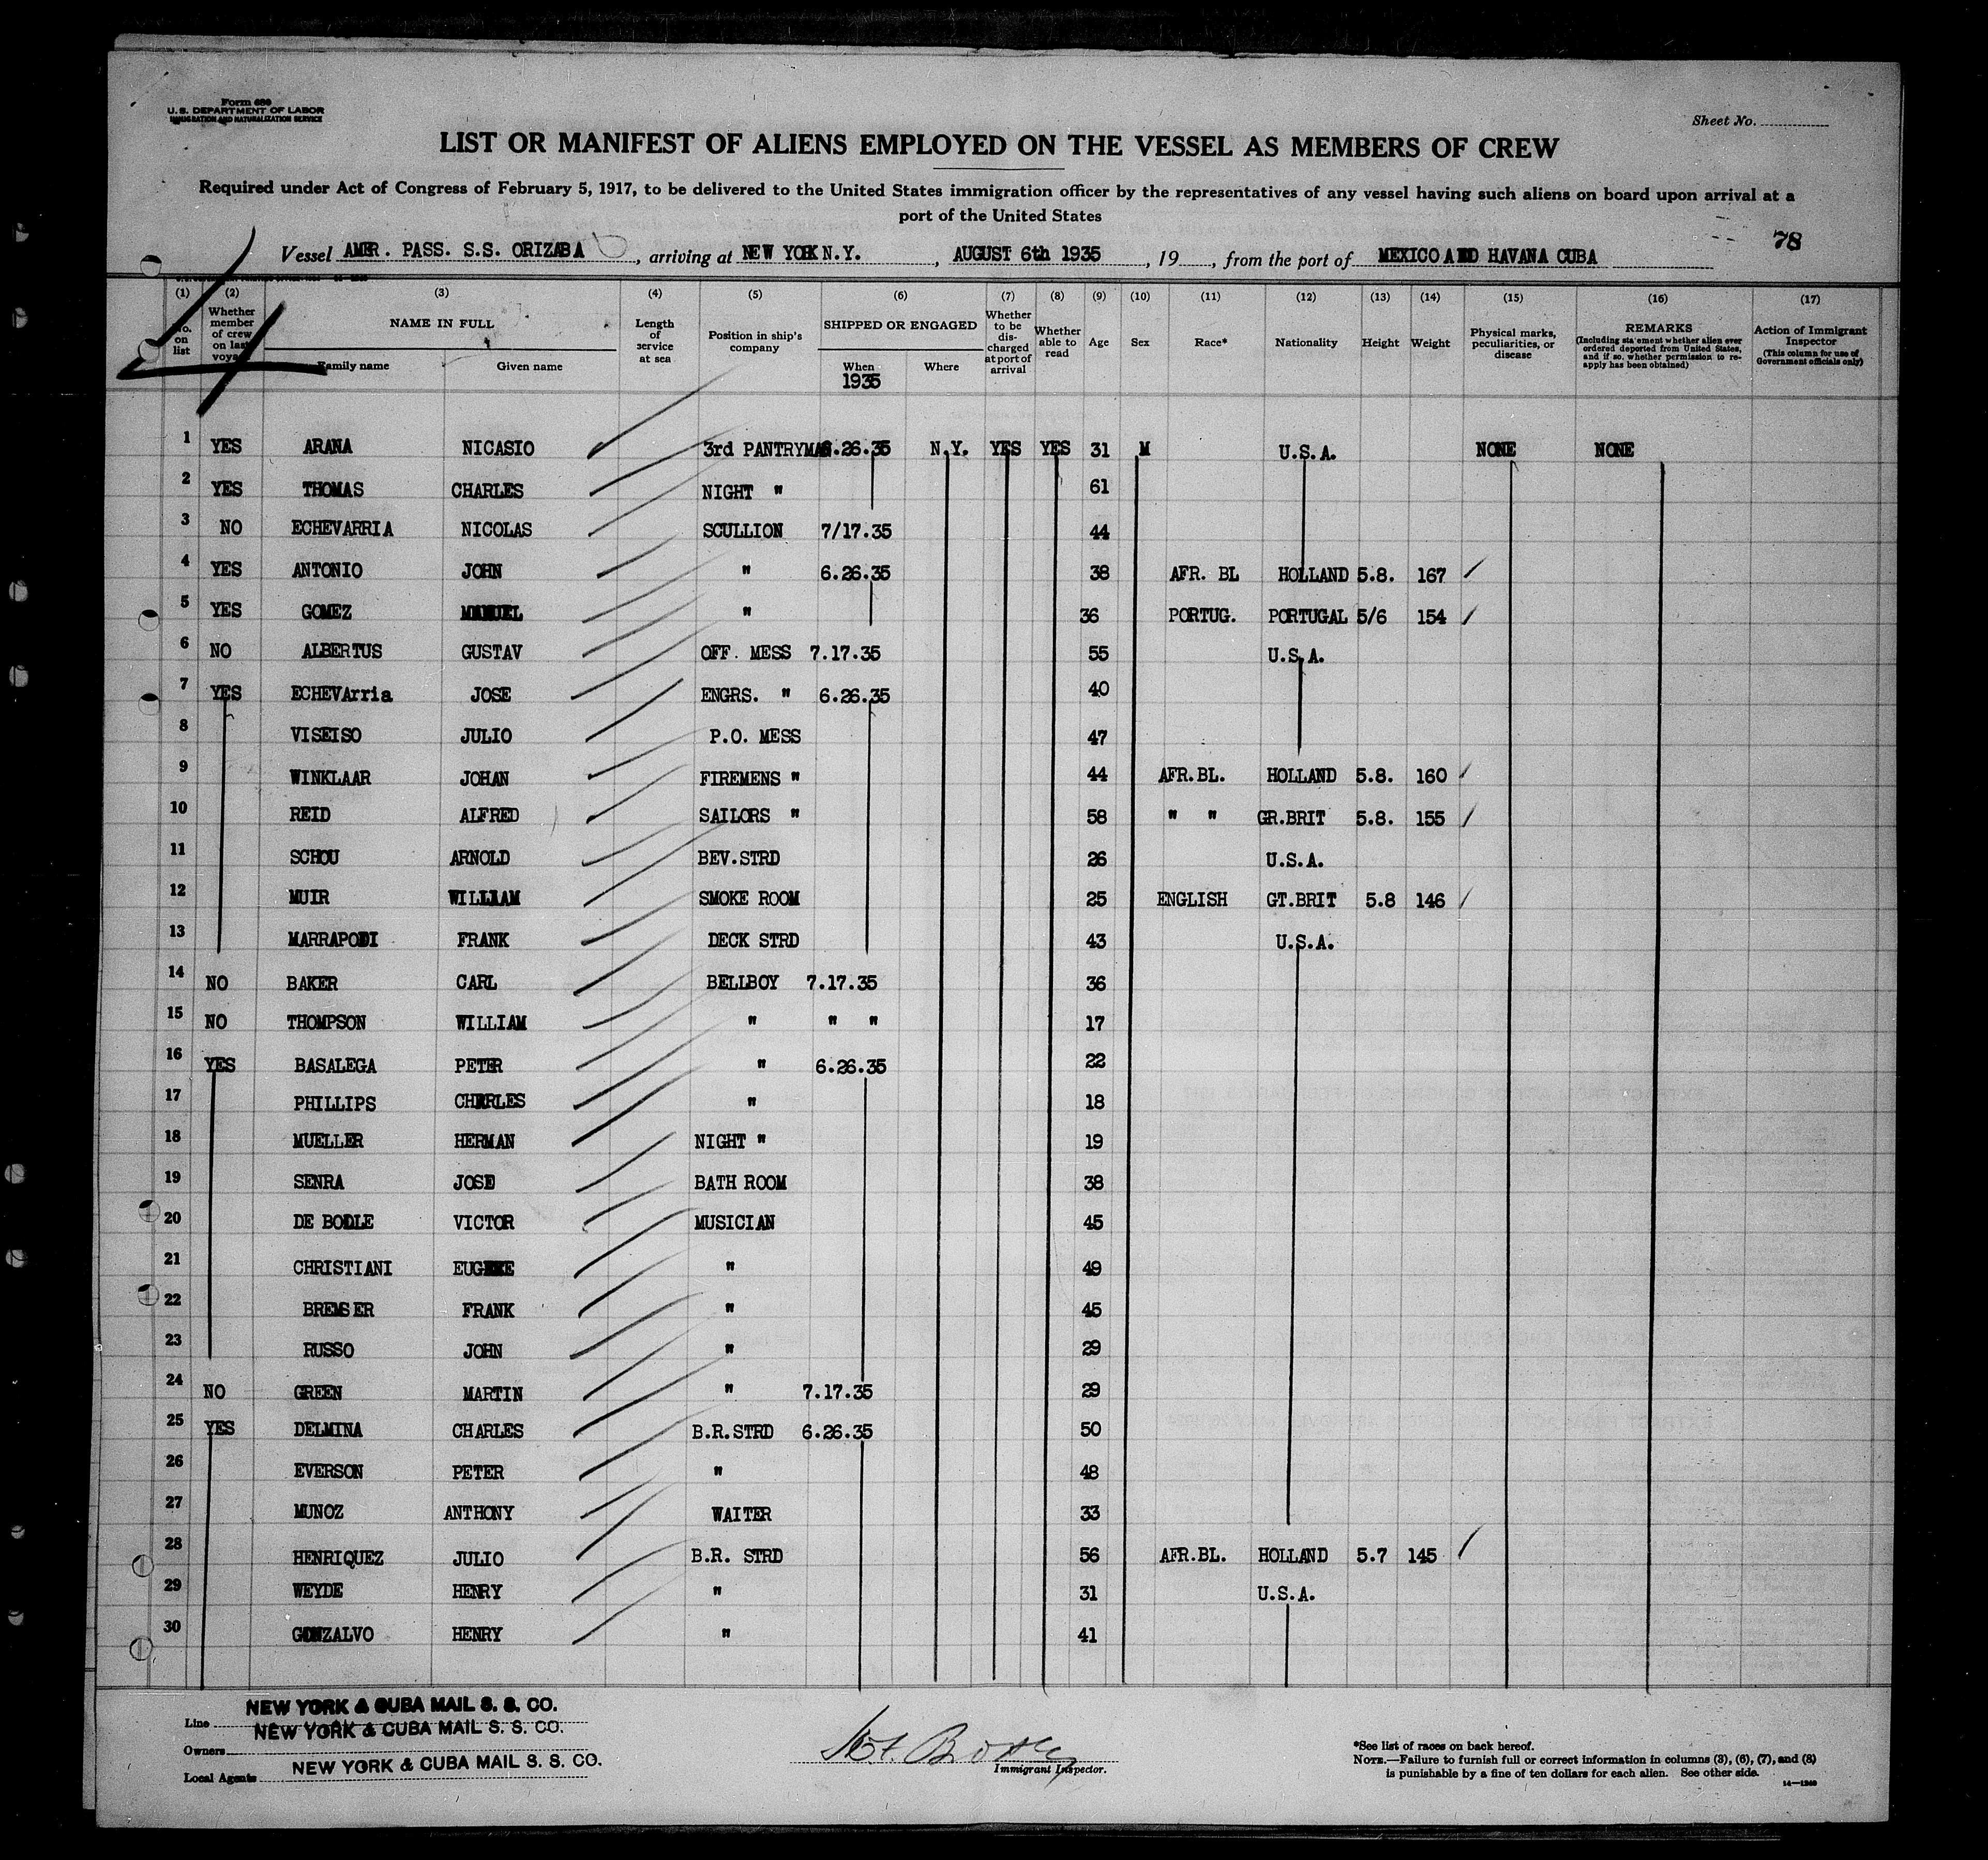 Form 689
U. S. DEPARTMENT OF LABOR
IMMIGRATION AND NATURALIZATION SERVICE
Sheet No.
LIST OR MANIFEST OF ALIENS EMPLOYED ON THE VESSEL AS MEMBERS OF CREW
Required under Act of Congress of February 5, 1917, to be delivered to the United States immigration officer by the representatives of any vessel having such aliens on board upon arrival at a
port of the United States
78
Vessel AMER. PASS. S.S. ORIZABA, arriving at NEW YORK N.Y., AUGUST 6th 1935, 19, from the port of MEXICO AND HAVANA CUBA
(1) (2) (3) (4) (5) (6) (7) (8) (9) (10) (11) (12) (13) (14) (15) (16) (17)
No. on list
Whether member of crew on last voyage
NAME IN FULL
Family name Given name
Length of service at sea
Position in ship's company
SHIPPED OR ENGAGED
When Where
1935
Whether to be discharged at port of arrival
Whether able to read
Age
Sex
Race*
Nationality
Height
Weight
Physical marks, peculiarities, or disease
REMARKS
(Including statement whether alien ever ordered deported from United States, and if so, whether permission to reapply has been obtained)
Action of Immigrant Inspector
(This column for use of Government officials only)
1 YES ARANA NICASIO 3rd PANTRYMAN 6.26.35 N.Y. YES YES 31 M U.S.A. NONE NONE
2 YES THOMAS CHARLES NIGHT " 61
3 NO ECHEVARRIA NICOLAS SCULLION 7/17.35 44
4 YES ANTONIO JOHN " 6.26.35 38 AFR. BL HOLLAND 5.8. 167
5 YES GOMEZ MANUEL " 36 PORTUG. PORTUGAL 5/6 154
6 NO ALBERTUS GUSTAV OFF. MESS 7.17.35 55 U.S.A.
7 YES ECHEVArria JOSE ENGRS. " 6.26.35 40
8 VISEISO JULIO P.O. MESS 47
9 WINKLAAR JOHAN FIREMENS " 44 AFR.BL. HOLLAND 5.8. 160
10 REID ALFRED SAILORS " 58 " " GR.BRIT 5.8. 155
11 SCHOU ARNOLD BEV.STRD 26 U.S.A.
12 MUIR WILLIAM SMOKE ROOM 25 ENGLISH GT.BRIT 5.8 146
13 MARRAPODI FRANK DECK STRD 43 U.S.A.
14 NO BAKER CARL BELLBOY 7.17.35 36
15 NO THOMPSON WILLIAM " " " 17
16 YES BASALEGA PETER " 6.26.35 22
17 PHILLIPS CHARLES " 18
18 MUELLER HERMAN NIGHT " 19
19 SENRA JOSE BATH ROOM 38
20 DE BODLE VICTOR MUSICIAN 45
21 CHRISTIANI EUGENE " 49
22 BREMSER FRANK " 45
23 RUSSO JOHN " 29
24 NO GREEN MARTIN " 7.17.35 29
25 YES DELMINA CHARLES B.R.STRD 6.26.35 50
26 EVERSON PETER " 48
27 MUNOZ ANTHONY WAITER 33
28 HENRIQUEZ JULIO B.R. STRD 56 AFR.BL. HOLLAND 5.7 145
29 WEYDE HENRY " 31 U.S.A.
30 GONZALVO HENRY " 41
Line NEW YORK & CUBA MAIL S. S. CO.
Owners NEW YORK & CUBA MAIL S. S. CO.
Local Agents NEW YORK & CUBA MAIL S. S. CO.
Immigrant Inspector.
*See list of races on back hereof.
NOTE.—Failure to furnish full or correct information in columns (3), (6), (7), and (8)
is punishable by a fine of ten dollars for each alien. See other side.
14—1240